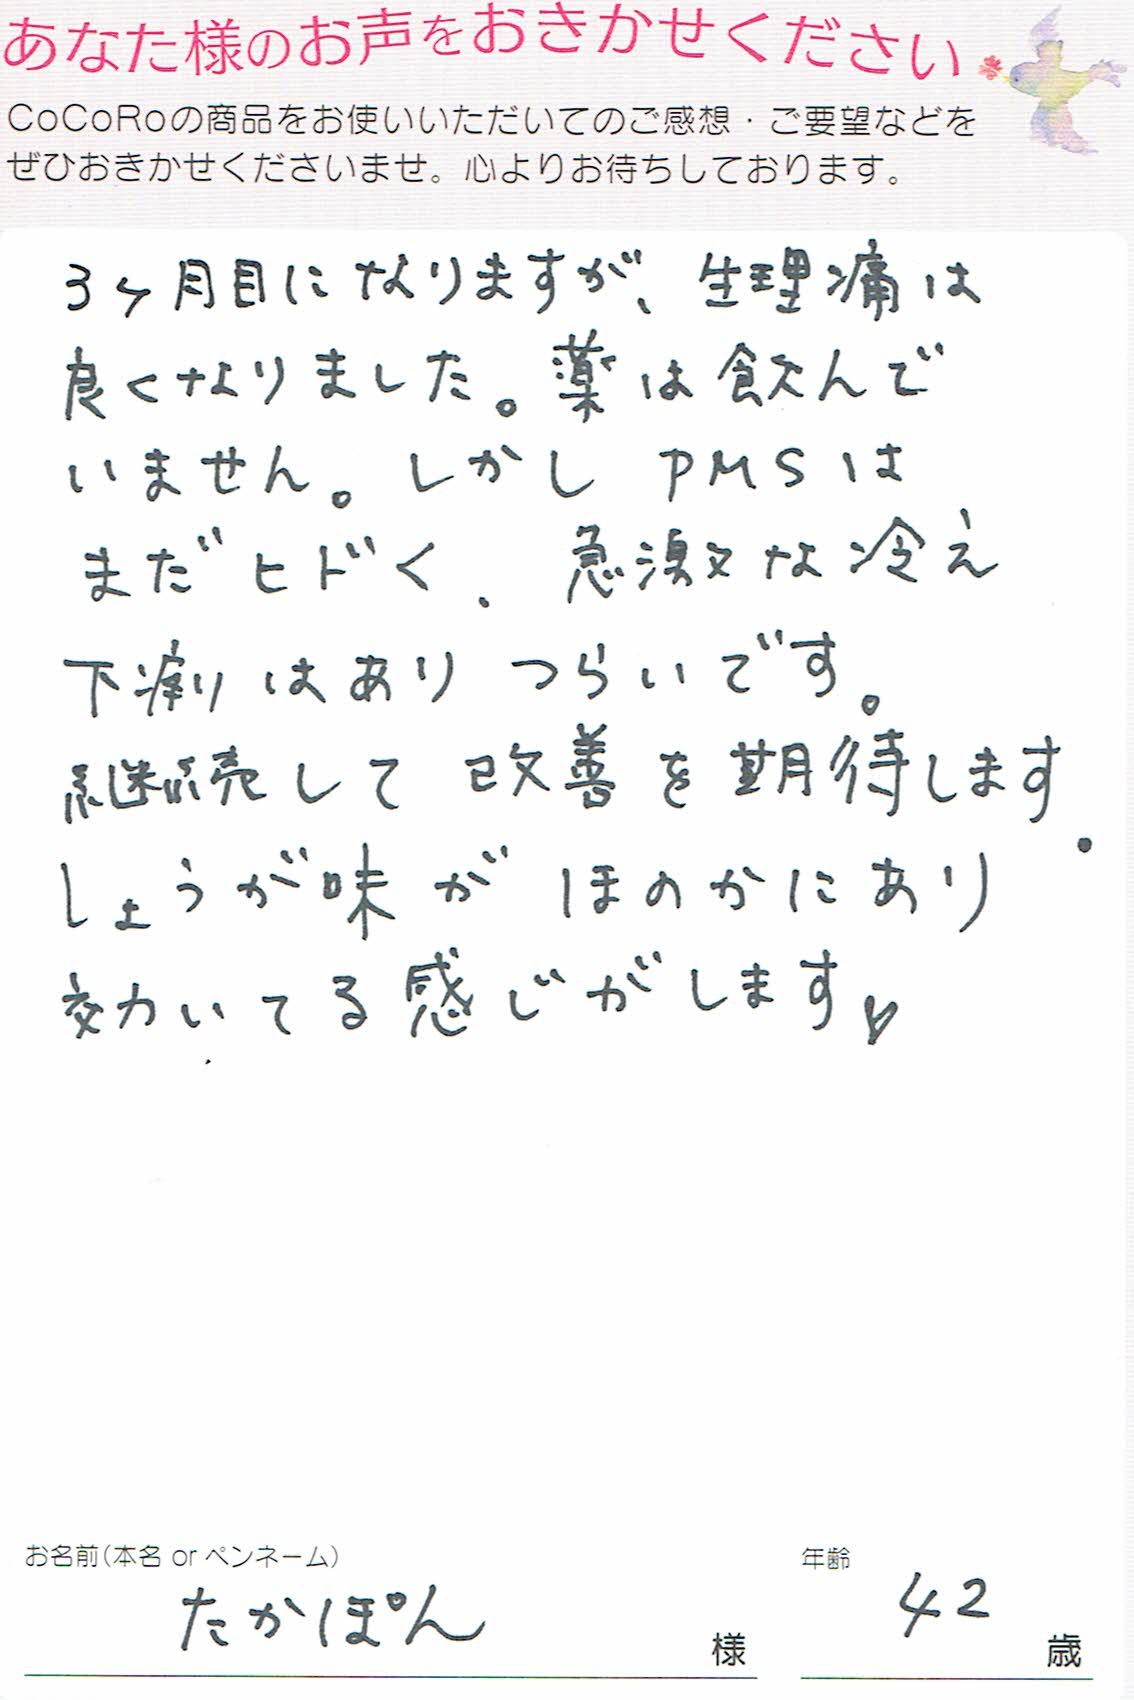 あなた様のお声をおきかせください
CoCoRoの商品をお使いいただいてのご感想・ご要望などを
ぜひおきかせくださいませ。心よりお待ちしております。
3ヶ月目になりますが、生理痛は
良くなりました。薬は飲んで
いません。しかしPMSは
まだヒドく、急激な冷え
下痢はありつらいです。
継続して改善を期待します.
しょうが味がほのかにあり
効いてる感じがします♡
お名前(本名 or ペンネーム)
たかぽん 様
年齢
42 歳